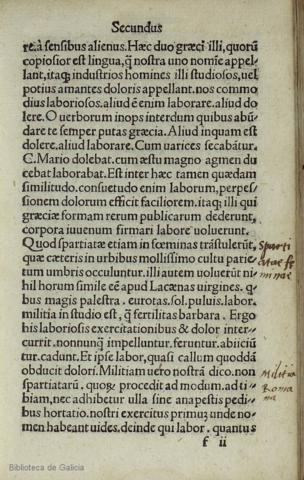 Secundus
re.à sensibus alienus. Hæc duo græci illi, quorū
copiosior est lingua, q̃ nostra uno nomīe appel/
lant, itaq; industrios homines illi studiosos, uel
potius amantes doloris appellant. nos commo
dius laboriosos. aliud ē enim laborare. aliud do
lere. O uerborum inops interdum quibus abū/
dare te semper putas græcia. Aliud inquam est
dolere. aliud laborare. Cum uarices secabātur.
C. Mario dolebat. cum æstu magno agmen du
cebat laborabat. Est inter hæc tamen quædam
similitudo. consuetudo enim laborum, perpes/
sionem dolorum efficit faciliorem. itaq; illi qui
græciæ formam rerum publicarum dederunt,
corpora iuuenum firmari labore uoluerunt.
Quod spartiatæ etiam in fœminas trāstulerūt,
quæ cæteris in urbibus mollissimo cultu parie/
tum umbris occuluntur. illi autem uoluerūt ni/
hil horum simile eē apud Lacænas uirgines. q̄
bus magis palestra. eurotas. sol. puluis. labor.
militia in studio est, q̃ fertilitas barbara. Ergo
his laboriosis exercitationibus & dolor inter/
currit. nonnunq̃ impelluntur. feruntur. abiiciū
tur. cadunt. Et ipse labor, quasi callum quoddā
obducit dolori. Militiam uero nostrā dico. non
spartiatarū. quoꝝ procedit ad modum. ad ti/
biam, nec adhibetur ulla sine anapestis pedi/
bus hortatio. nostri exercitus primuꝫ unde no/
men habeant uides. deinde qui labor. quantus
f ii
Sparti
atæ fœ
minæ
Militia
Roma
na
Biblioteca de Galicia